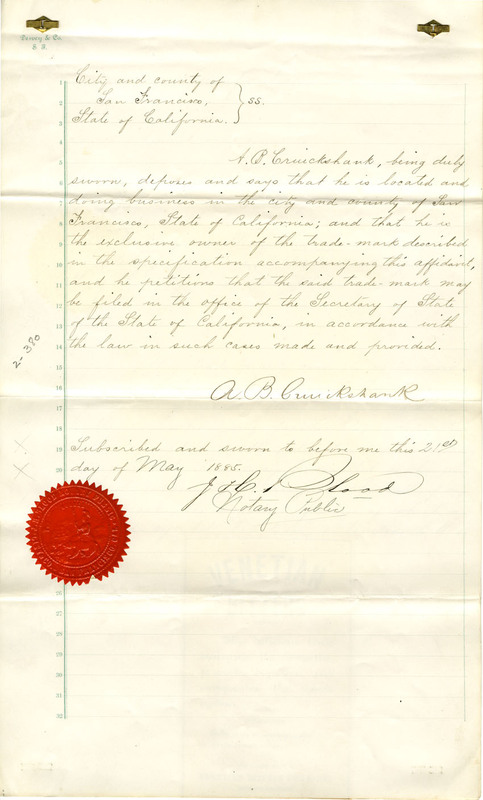 City and county of
San Francisco, } ss.
State of California.
A. B. Cruickshank, being duly
sworn, deposes and says that he is located and
doing business in the city and county of San
Francisco, State of California; and that he is
the exclusive owner of the trade-mark described
in the specification accompanying this affidavit,
and he petitions that the said trade-mark may
be filed in the office of the Secretary of State
of the State of California, in accordance with
the law in such cases made and provided.
A. B. Cruickshank
Subscribed and sworn to before me this 21st
day of May 1885.
Blood
Notary Public
2-380
1
2
3
4
5
6
7
8
9
10
11
12
13
14
15
16
17
18
19
20
26
27
28
29
30
31
32